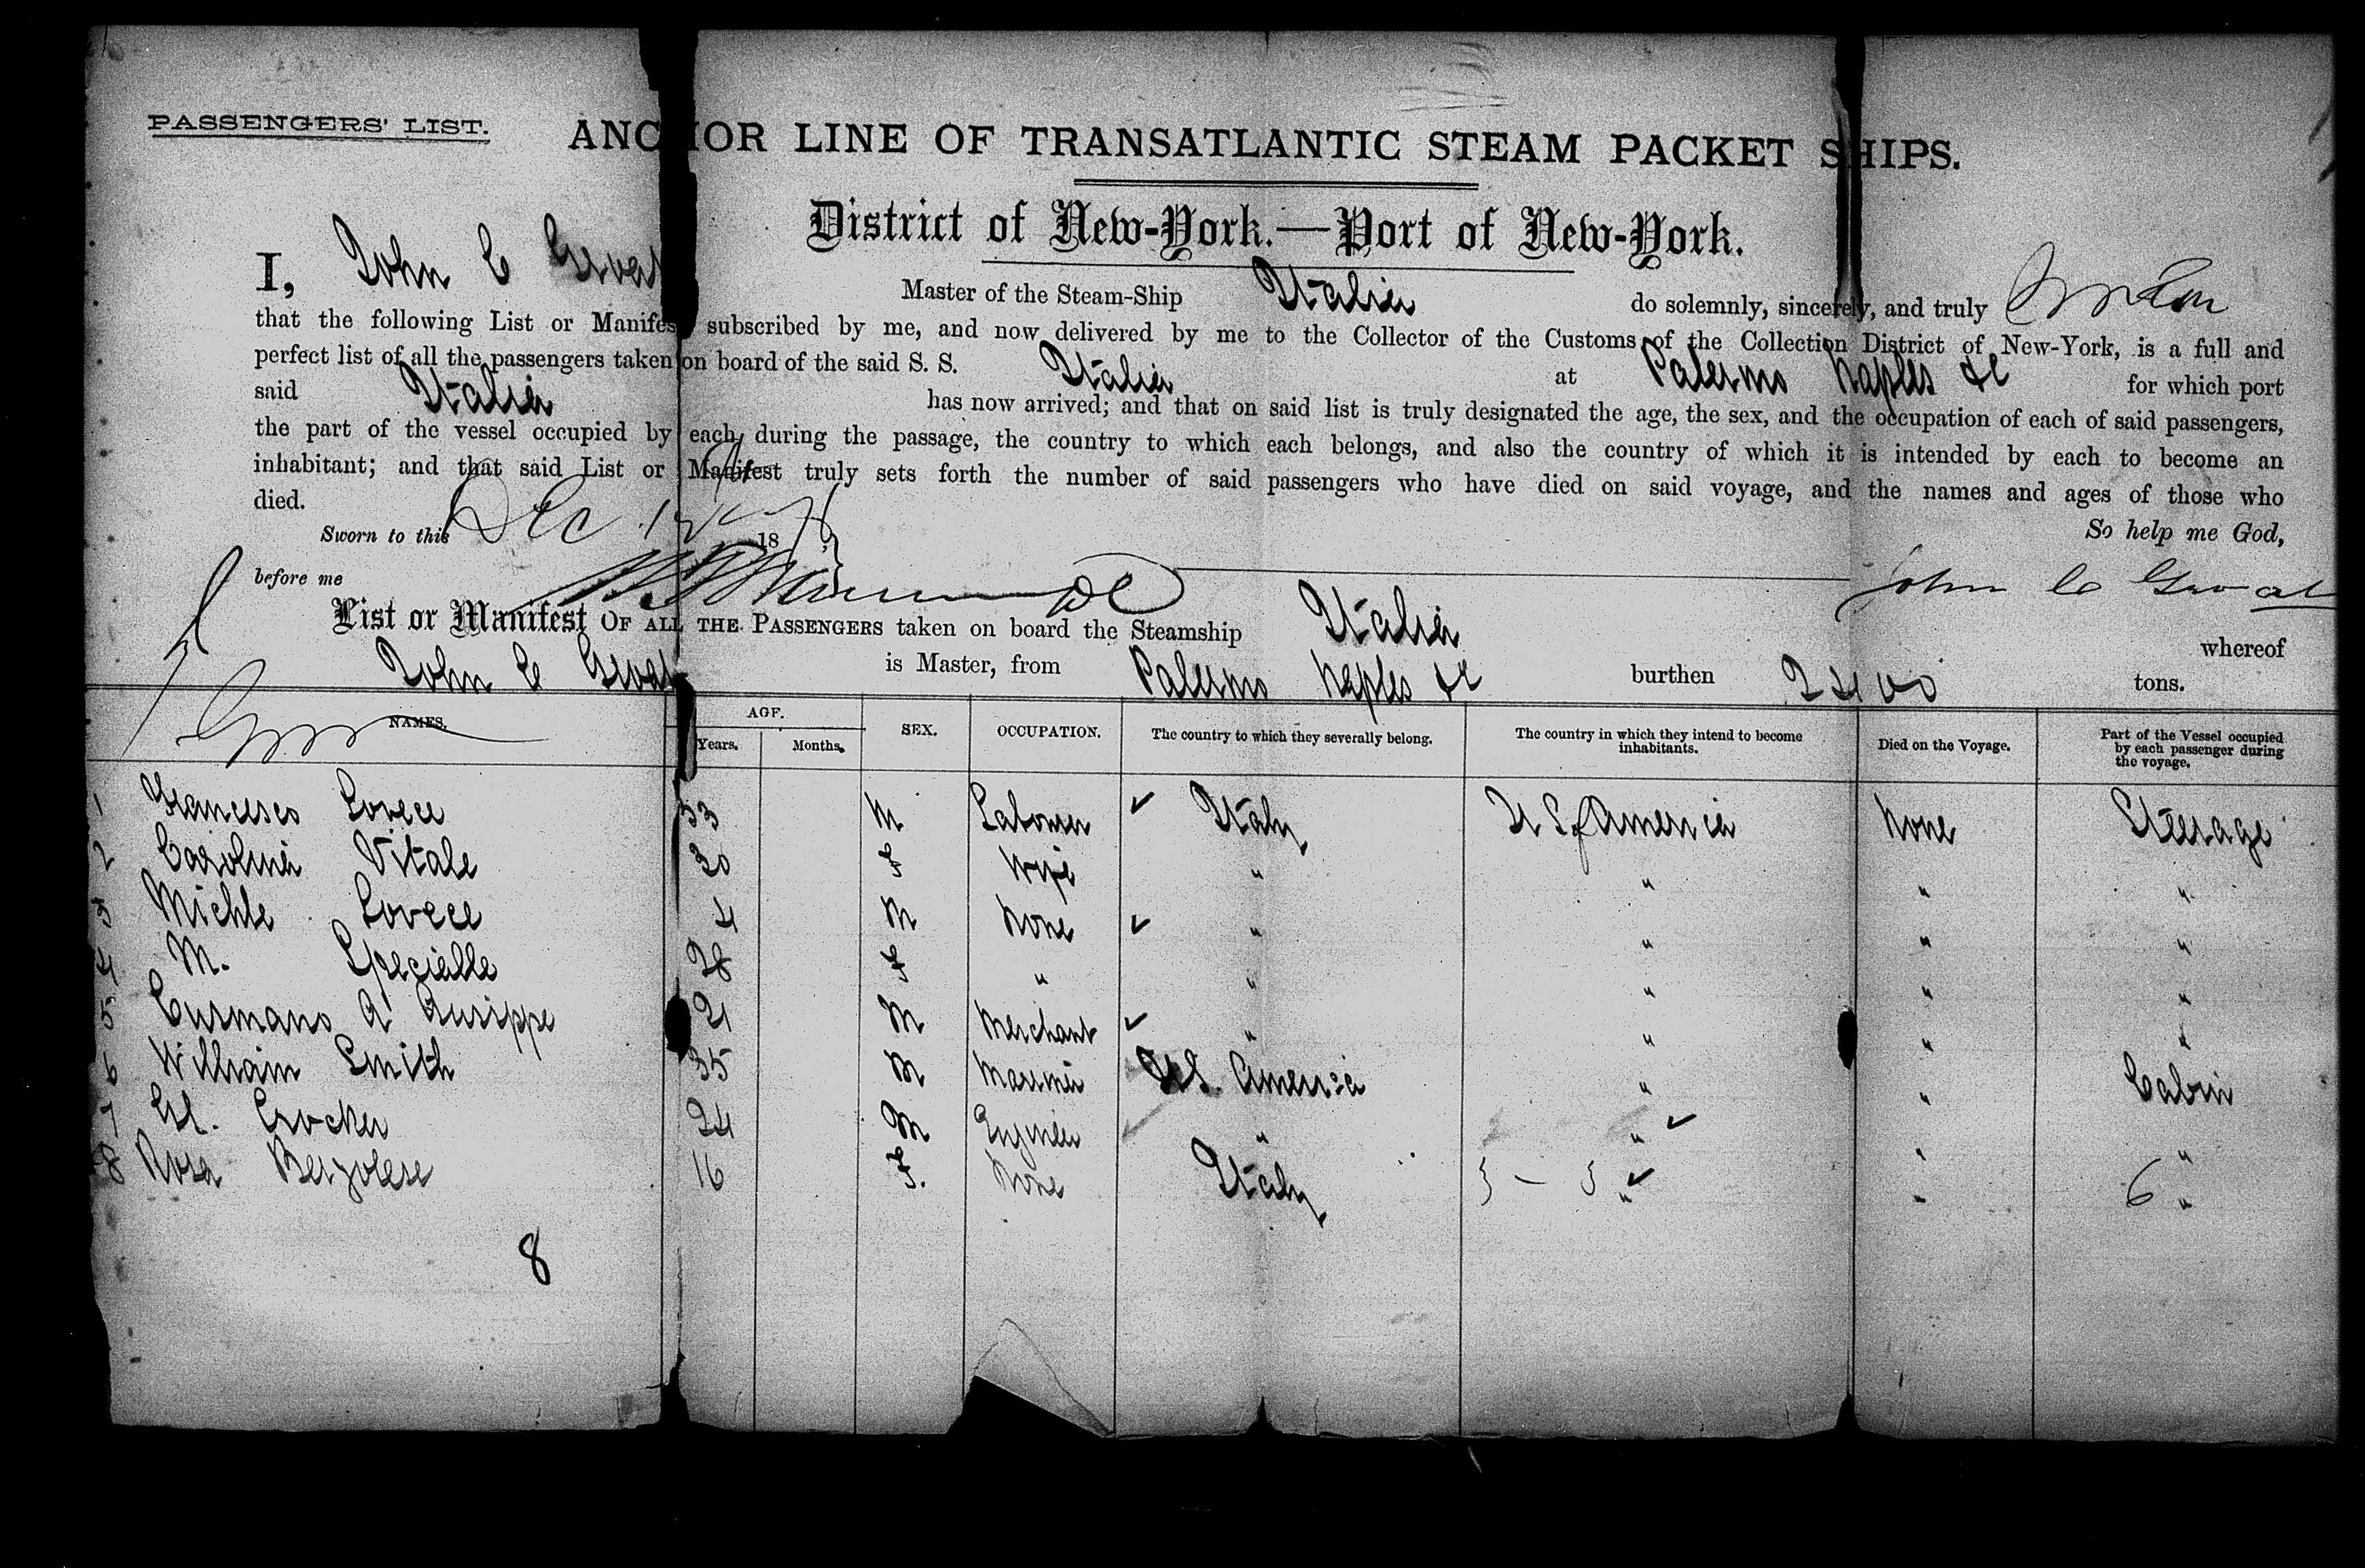 PASSENGERS' LIST.
ANCHOR LINE OF TRANSATLANTIC STEAM PACKET SHIPS.
District of New-York.—Port of New-York.
I, John C Master of the Steam-Ship Italia do solemnly, sincerely, and truly
that the following List or Manifest subscribed by me, and now delivered by me to the Collector of the Customs of the Collection District of New-York, is a full and
perfect list of all the passengers taken on board of the said S. S. Italia at Palermo Naples &c for which port
said Italia has now arrived; and that on said list is truly designated the age, the sex, and the occupation of each of said passengers,
the part of the vessel occupied by each during the passage, the country to which each belongs, and also the country of which it is intended by each to become an
inhabitant; and that said List or Manifest truly sets forth the number of said passengers who have died on said voyage, and the names and ages of those who
died.
So help me God,
Sworn to this Dec 18
before me
John C
List or Manifest OF ALL THE PASSENGERS taken on board the Steamship Italia whereof
John C is Master, from Palermo Naples &c burthen 2400 tons.
NAMES. AGE. Years. Months. SEX. OCCUPATION. The country to which they severally belong. The country in which they intend to become inhabitants. Died on the Voyage. Part of the Vessel occupied by each passenger during the voyage.
1 Francesco Lovece 33 M Labourer Italy U S of America None Steerage
2 Carolina Vitale 30 F Wife " " " "
3 Michle Lovece 4 M None " " " "
4 M. Specialle 28 F " " " " "
5 Cusmano A 21 M Merchant " " " "
6 William Smith 35 M Mariner U.S. America " " Cabin
7 Crocker 24 M Engineer " " " "
8 Rosa 16 F. None Italy " " 6 "
8